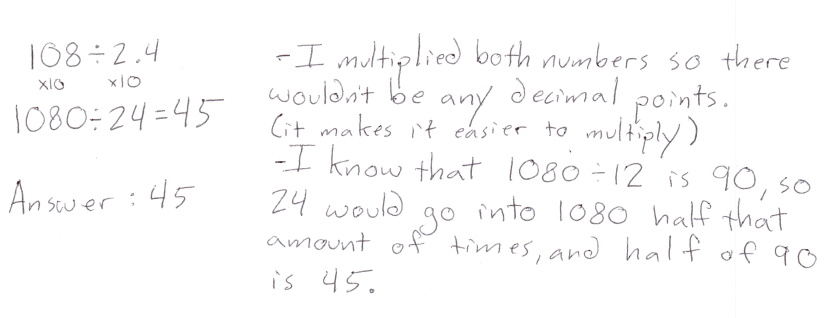 108÷2.4
x10 x10
1080÷24=45
Answer: 45
-I multiplied both numbers so there
wouldn't be any decimal points.
(it makes it easier to multiply)
-I know that 1080÷12 is 90, so
24 would go into 1080 half that
amount of times, and half of 90
is 45.